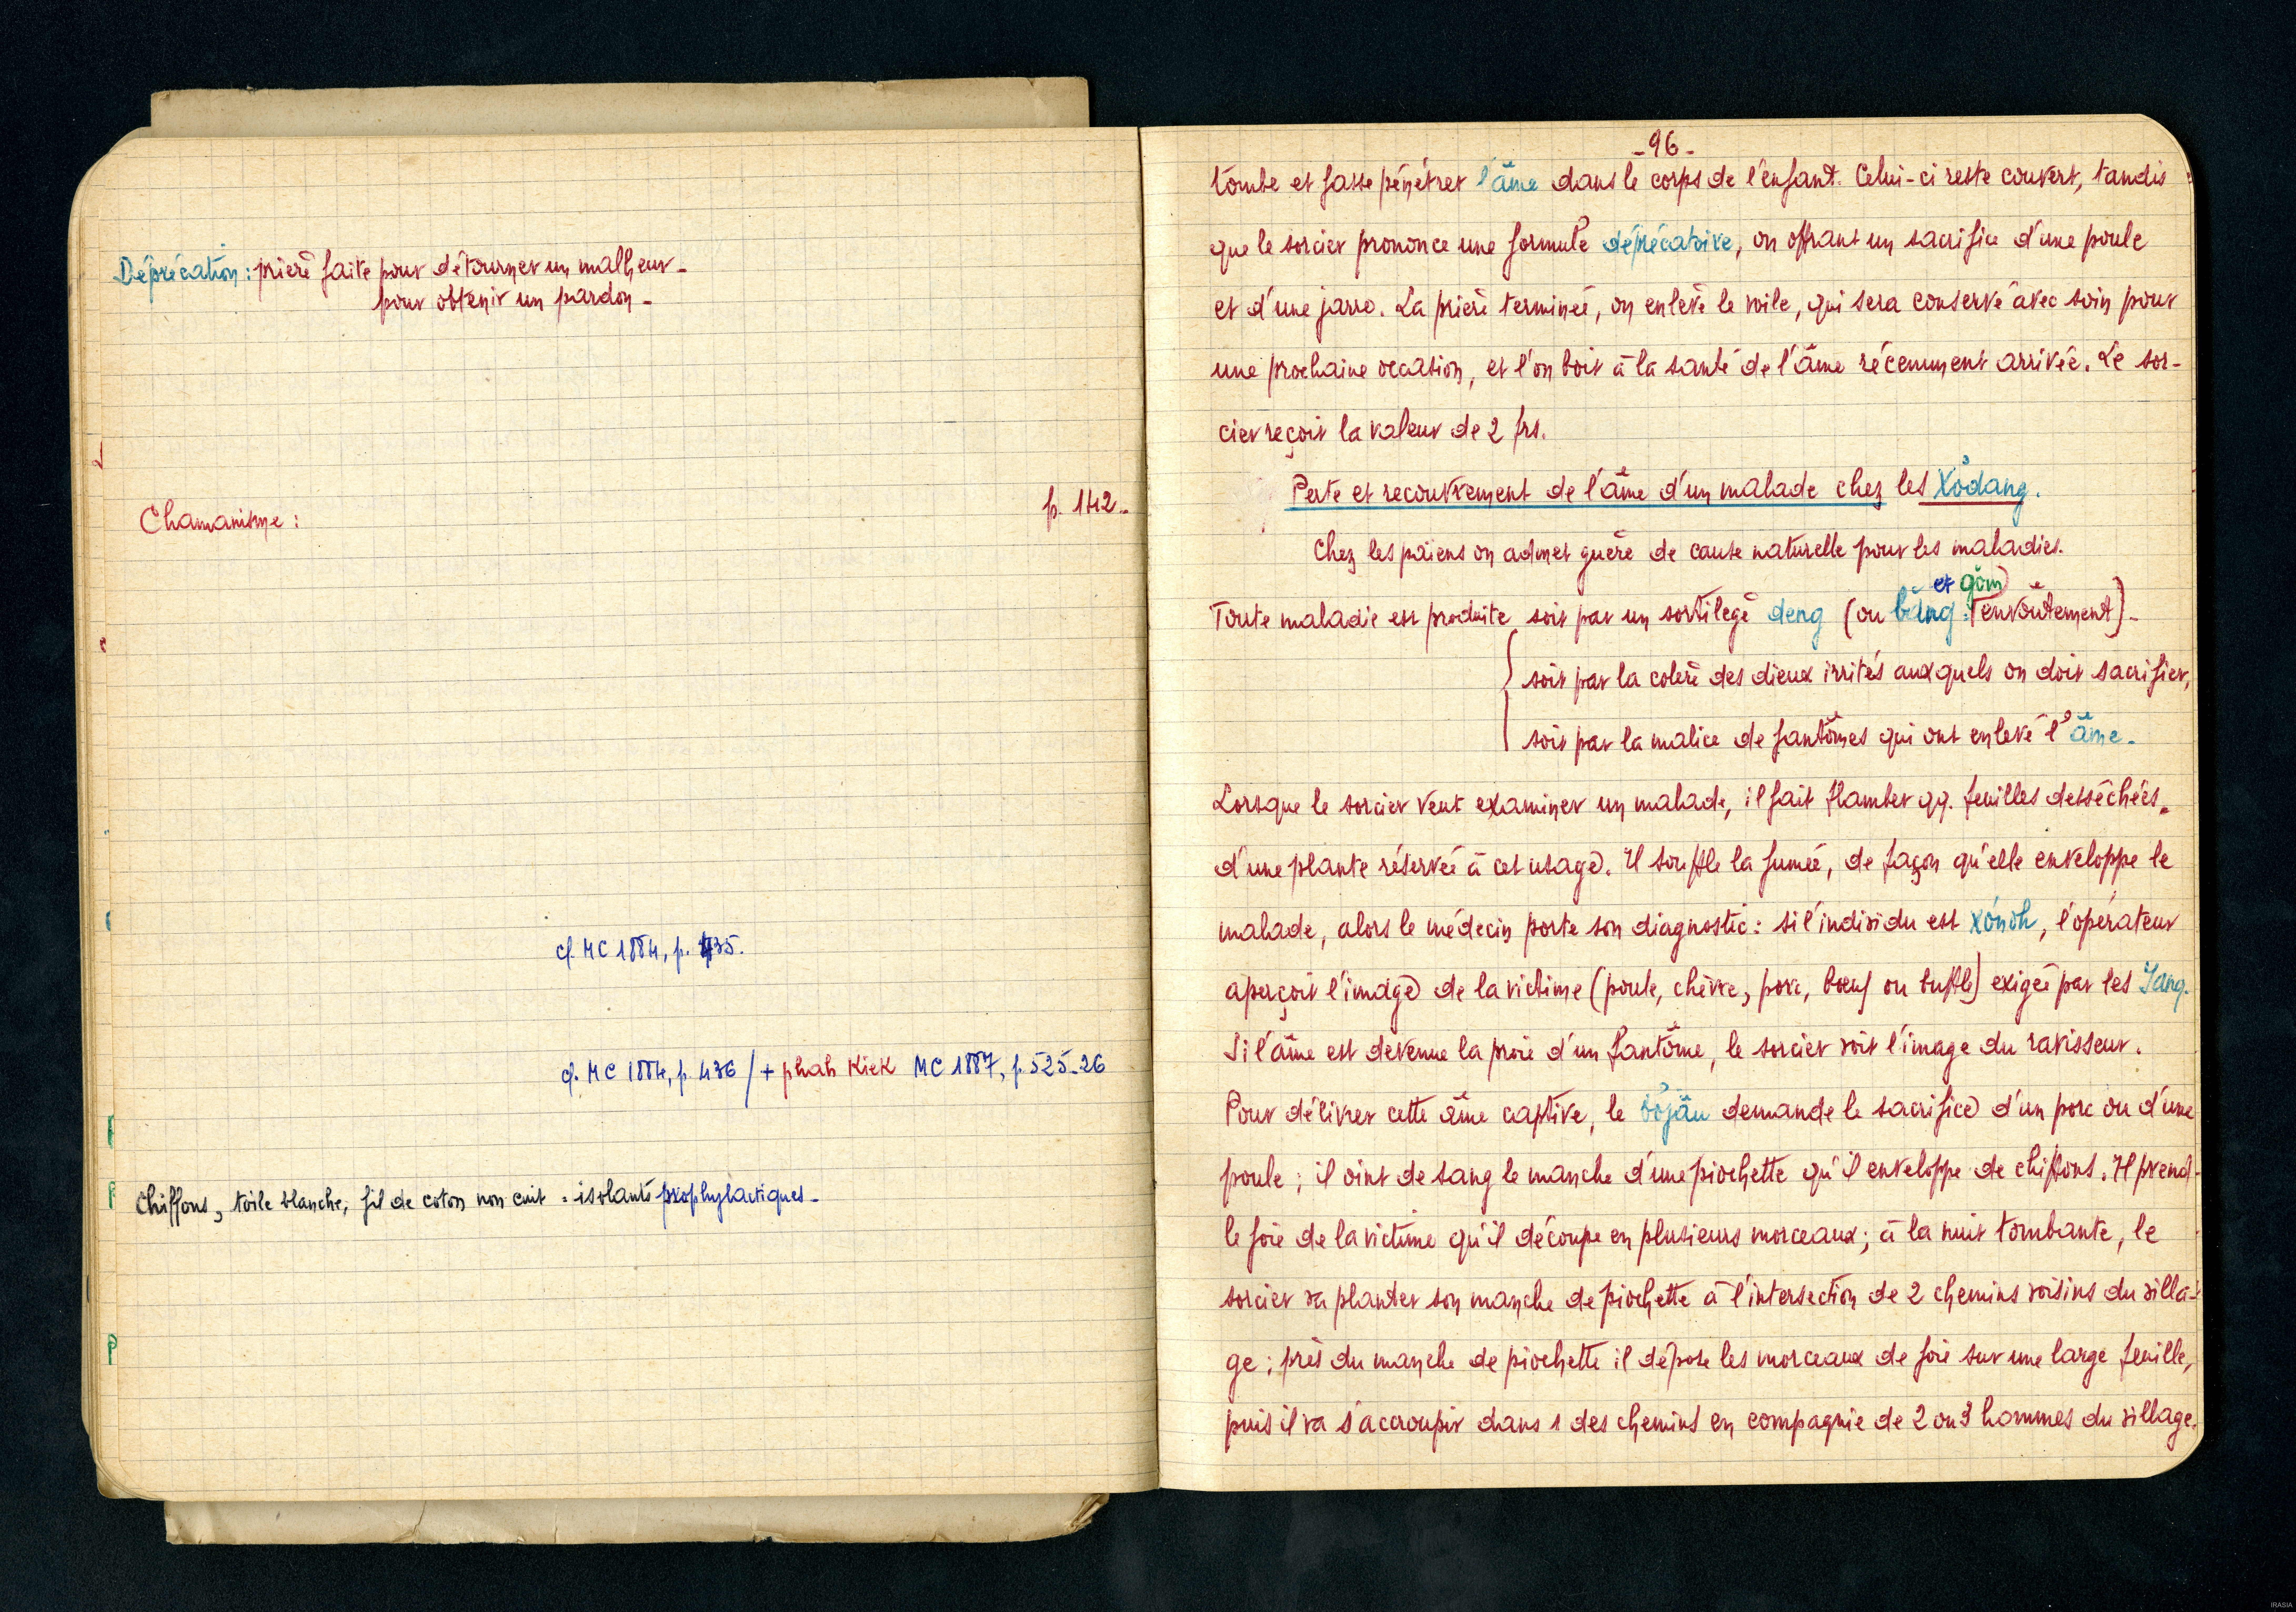 Déprécation : prière faite pour détourner un malheur -
pour obtenir un pardon -
Chamanisme : p. 142 -
cf. MC 1884, p. 435.
cf. MC 1884, p. 436 / + phah kiek MC 1887, p. 525-26
Chiffons, toile blanche, fil de coton non cuit = isolants prophylactiques -
- 96 -
tombe et fasse pénétrer l'âme dans le corps de l'enfant. Celui-ci reste couvert, tandis
que le sorcier prononce une formule déprécatoire, en offrant un sacrifice d'une poule
et d'une jarre. La prière terminée, on enlève le voile, qui sera conservé avec soin pour
une prochaine occasion, et l'on boit à la santé de l'âme récemment arrivée. Le sor-
cier reçoit la valeur de 2 frs.
Perte et recouvrement de l'âme d'un malade chez les Xôdang.
Chez les païens on admet guère de cause naturelle pour les maladies.
et gŏm)
Toute maladie est produite soit par un sortilège deng (ou bŭng : envoûtement) -
soit par la colère des dieux irrités auxquels on doit sacrifier,
soit par la malice de fantômes qui ont enlevé l'âme -
Lorsque le sorcier veut examiner un malade, il fait flamber qq. feuilles desséchées
d'une plante réservée à cet usage. Il souffle la fumée, de façon qu'elle enveloppe le
malade, alors le médecin porte son diagnostic : si l'individu est xónoh, l'opérateur
aperçoit l'image de la victime (poule, chèvre, porc, bœuf ou buffle) exigée par les Yang.
Si l'âme est devenue la proie d'un fantôme, le sorcier voit l'image du ravisseur.
Pour délivrer cette âme captive, le bơjâu demande le sacrifice d'un porc ou d'une
poule ; il oint de sang le manche d'une piochette qu'il enveloppe de chiffons. Il prend
le foie de la victime qu'il découpe en plusieurs morceaux ; à la nuit tombante, le
sorcier va planter son manche de piochette à l'intersection de 2 chemins voisins du villa-
ge ; près du manche de piochette il dépose les morceaux de foie sur une large feuille,
puis il va s'accroupir dans 1 des chemins en compagnie de 2 ou 3 hommes du village.
IRASIA